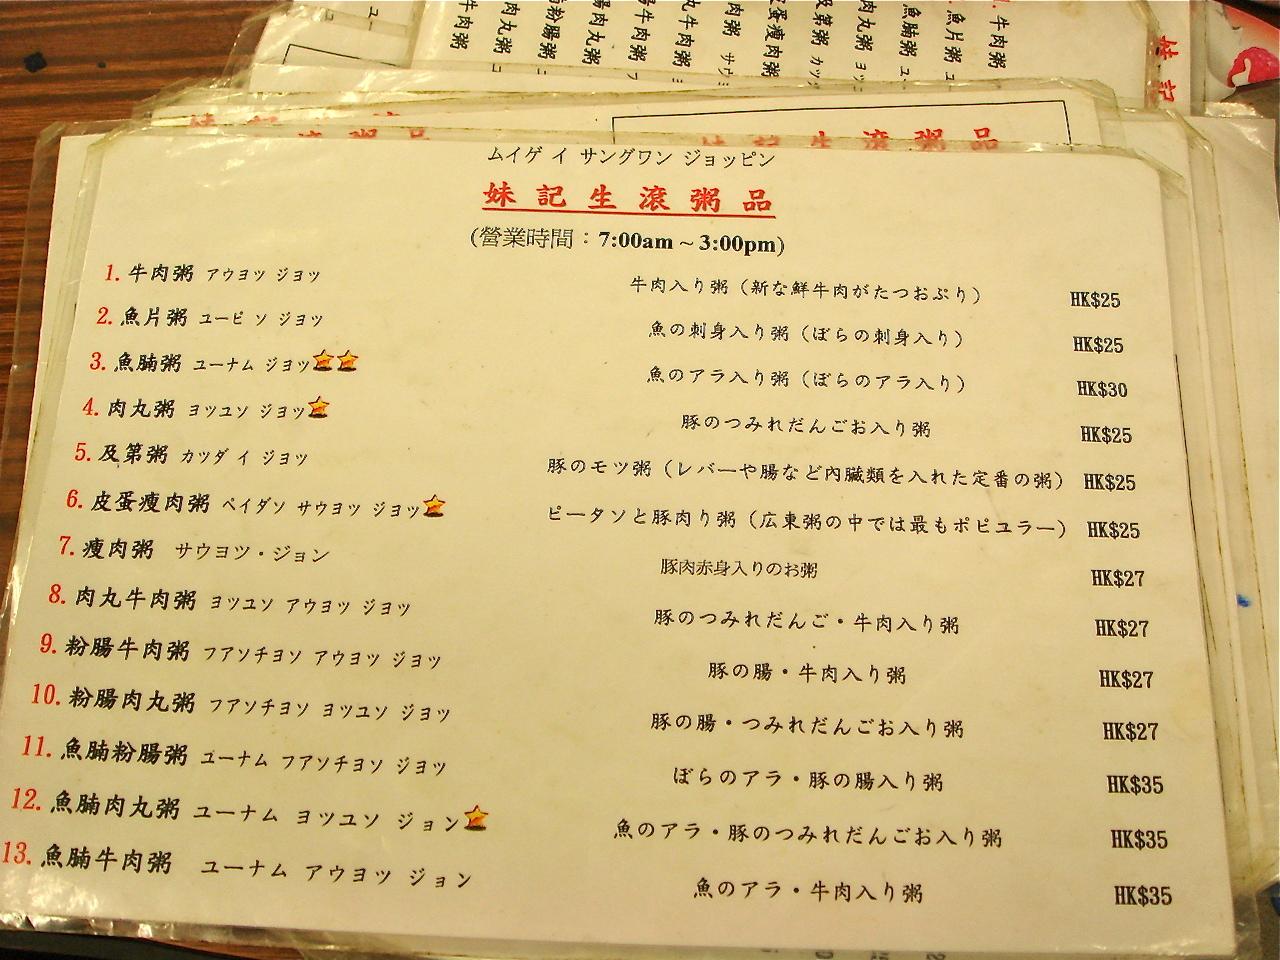 牛肉粥
肉丸粥
粉腸粥
肉丸粥
牛肉粥
丸牛肉粥
肉粥 サウヨ
皮蛋瘦肉粥
及第粥 カツダ
肉丸粥 ヨツ
魚腩粥 ユ
魚片粥 ユ
1. 牛肉粥
妹記
妹記生滾粥品
ムイゲ イ サングワン ジョッピン
妹記生滾粥品
(營業時間：7:00am ~ 3:00pm)
1. 牛肉粥 アウヨツ ジョツ 牛肉入り粥（新な鮮牛肉がたつおぷり） HK$25
2. 魚片粥 ユーピ ソ ジョツ 魚の刺身入り粥（ぼらの刺身入り） HK$25
3. 魚腩粥 ユーナム ジョツ 魚のアラ入り粥（ぼらのアラ入り） HK$30
4. 肉丸粥 ヨツユソ ジョツ 豚のつみれだんごお入り粥 HK$25
5. 及第粥 カツダ イ ジョツ 豚のモツ粥（レバーや腸など內臓類を入れた定番の粥） HK$25
6. 皮蛋瘦肉粥 ペイダソ サウヨツ ジョツ ピータソと豚肉り粥（広東粥の中では最もポピユラー） HK$25
7. 瘦肉粥 サウヨツ・ジョン 豚肉赤身入りのお粥 HK$27
8. 肉丸牛肉粥 ヨツユソ アウヨツ ジョツ 豚のつみれだんご・牛肉入り粥 HK$27
9. 粉腸牛肉粥 フアソチヨソ アウヨツ ジョツ 豚の腸・牛肉入り粥 HK$27
10. 粉腸肉丸粥 フアソチヨソ ヨツユソ ジョツ 豚の腸・つみれだんごお入り粥 HK$27
11. 魚腩粉腸粥 ユーナム フアソチヨソ ジョツ ぼらのアラ・豚の腸入り粥 HK$35
12. 魚腩肉丸粥 ユーナム ヨツユソ ジョン 魚のアラ・豚のつみれだんごお入り粥 HK$35
13. 魚腩牛肉粥 ユーナム アウヨツ ジョン 魚のアラ・牛肉入り粥 HK$35